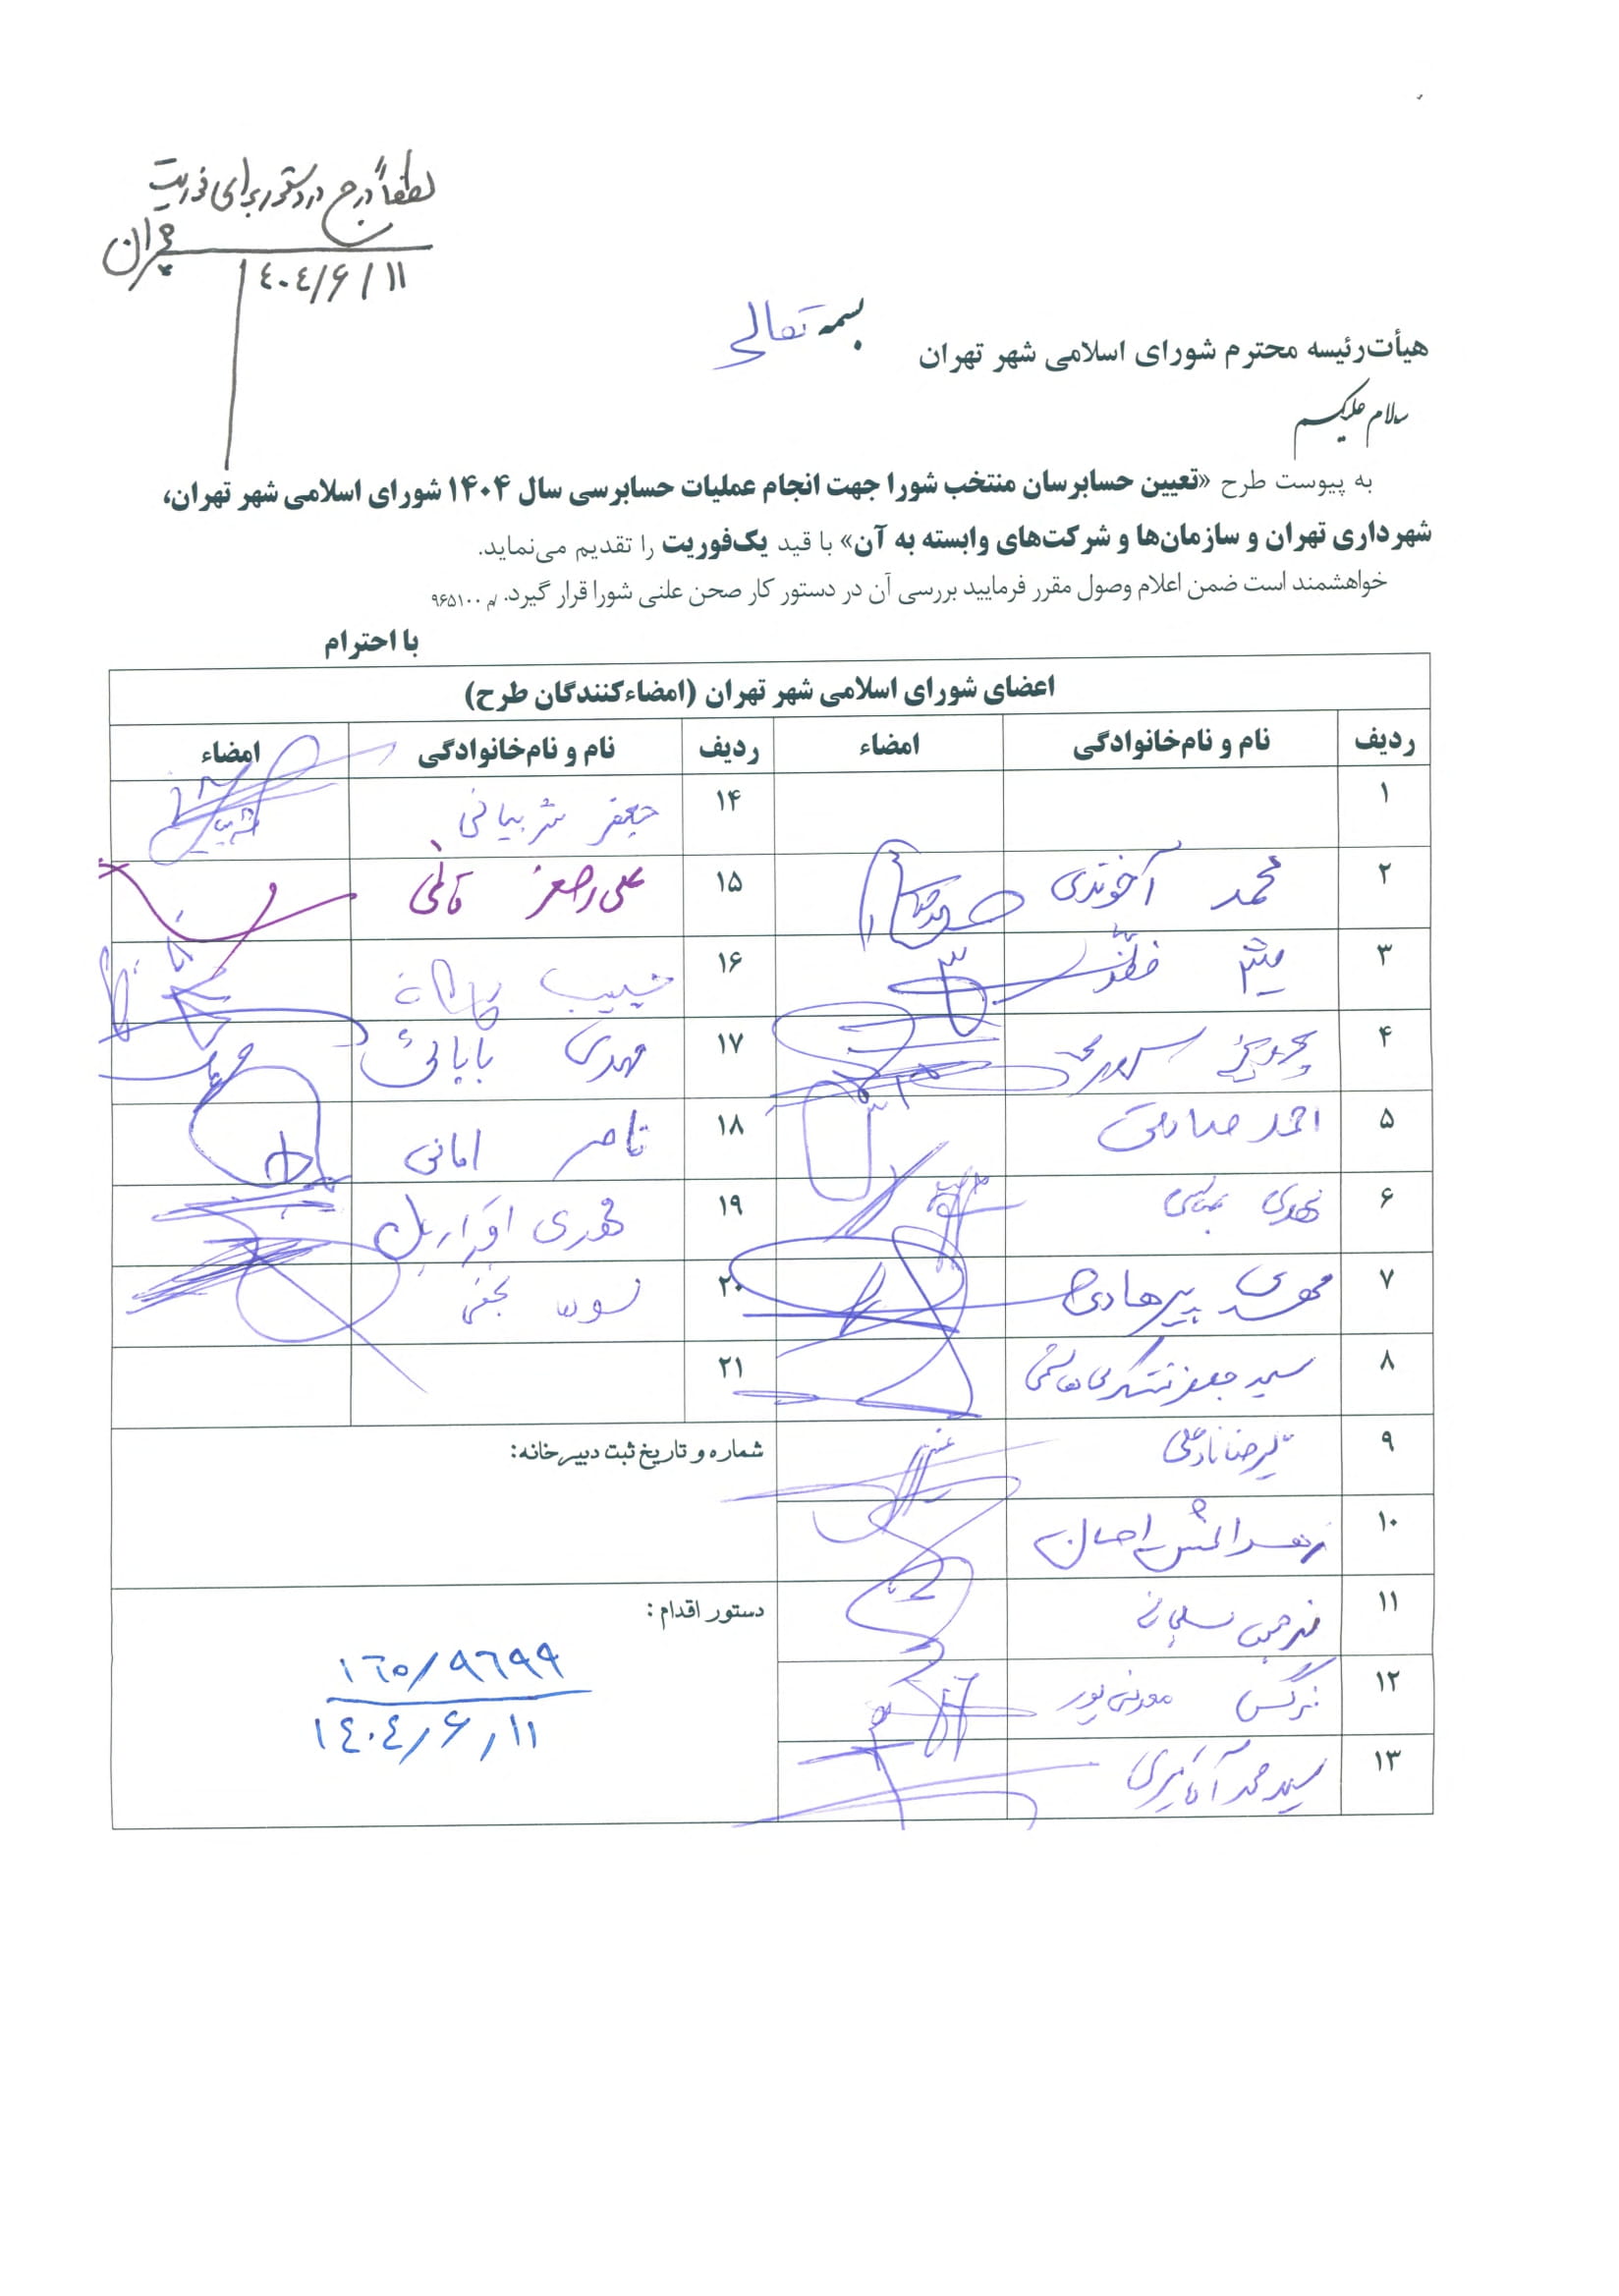 لطفاً درج در دستور برای فوریت
چمران
۱۴۰۴/۶/۱۱
بسمه تعالی
هیأت‌رئیسه محترم شورای اسلامی شهر تهران
سلام علیکم
به پیوست طرح «تعیین حسابرسان منتخب شورا جهت انجام عملیات حسابرسی سال ۱۴۰۴ شورای اسلامی شهر تهران،
شهرداری تهران و سازمان‌ها و شرکت‌های وابسته به آن» با قید یک‌فوریت را تقدیم می‌نماید.
خواهشمند است ضمن اعلام وصول مقرر فرمایید بررسی آن در دستور کار صحن علنی شورا قرار گیرد. /م ۹۶۵۱۰۰
با احترام
اعضای شورای اسلامی شهر تهران (امضاءکنندگان طرح)
ردیف نام و نام‌خانوادگی امضاء ردیف نام و نام‌خانوادگی امضاء
۱ ۱۴ جعفر شربیانی
۲ محمد آخوندی ۱۵ علی اصغر قائمی
۳ میثم مظفر ۱۶
۴ پرویز سروری ۱۷ مهدی بابائی
۵ احمد صادقی ۱۸ ناصر امانی
۶ مهدی عباسی ۱۹ مهدی اقراریان
۷ مهدی پیرهادی ۲۰ سوده نجفی
۸ سید جعفر تشکری هاشمی ۲۱
۹ علیرضا نادعلی شماره و تاریخ ثبت دبیرخانه:
۱۰ زهرا شمس احسان
۱۱ سلیمانی دستور اقدام:
۱۶۰/۹۶۹۹
۱۴۰۴/۶/۱۱
۱۲ نرگس معدنی‌پور
۱۳ سید محمد آقامیری